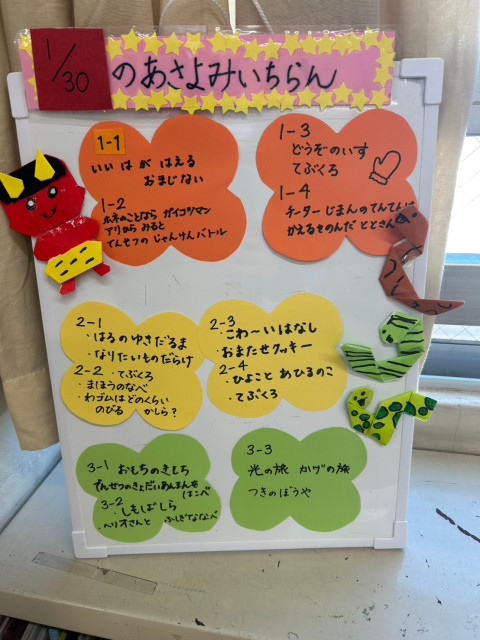 1/30
のあさよみいちらん
1-1
いい はが はえる
おまじない
1-2
ホネのことなら ガイコツマン
アリから みると
でんせつの じゃんけんバトル
1-3
どうぞのいす
てぶくろ
1-4
チーターじまんのてんてんは
かえるをのんだ ととさん
2-1
・はるのゆきだるま
・なりたいものだらけ
2-2 ・てぶくろ
・まほうのなべ
・わゴムはどのくらい
のびる かしら?
2-3
・こわ〜いはなし
・おまたせクッキー
2-4
・ひよこと あひるのこ
・てぶくろ
3-1 おもちのきもち
でんせつのきょだいあんまんを
はこべ
3-2
・しもばしら
・ヘリオさんと ふしぎななべ
3-3
光の旅 かげの旅
つきのぼうや